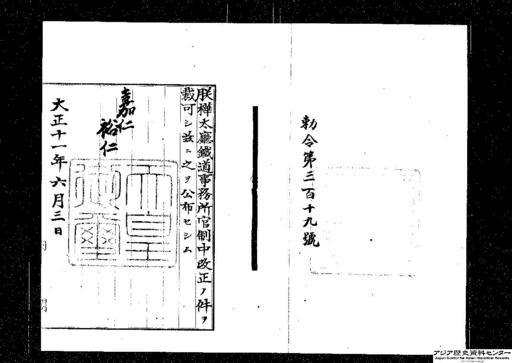 勅令第三百十九號
朕樺太廳鐵道事務所官制中改正ノ件ヲ
裁可シ玆ニ之ヲ公布セシム
嘉仁
裕仁
天皇
御璽
大正十一年六月三日
アジア歴史資料センター
Japan Center for Asian Historical Records